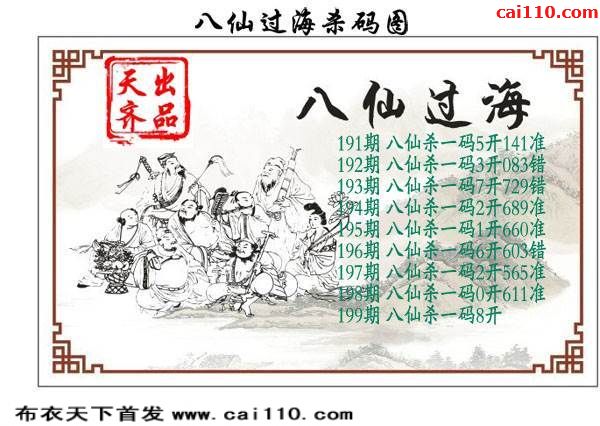 八仙过海杀码图
cai110.com
天出
齐品
八仙过海
191期 八仙杀一码5开141准
192期 八仙杀一码3开083错
193期 八仙杀一码7开729错
194期 八仙杀一码2开689准
195期 八仙杀一码1开660准
196期 八仙杀一码6开603错
197期 八仙杀一码2开565准
198期 八仙杀一码0开611准
199期 八仙杀一码8开
布衣天下首发 www.cai110.com